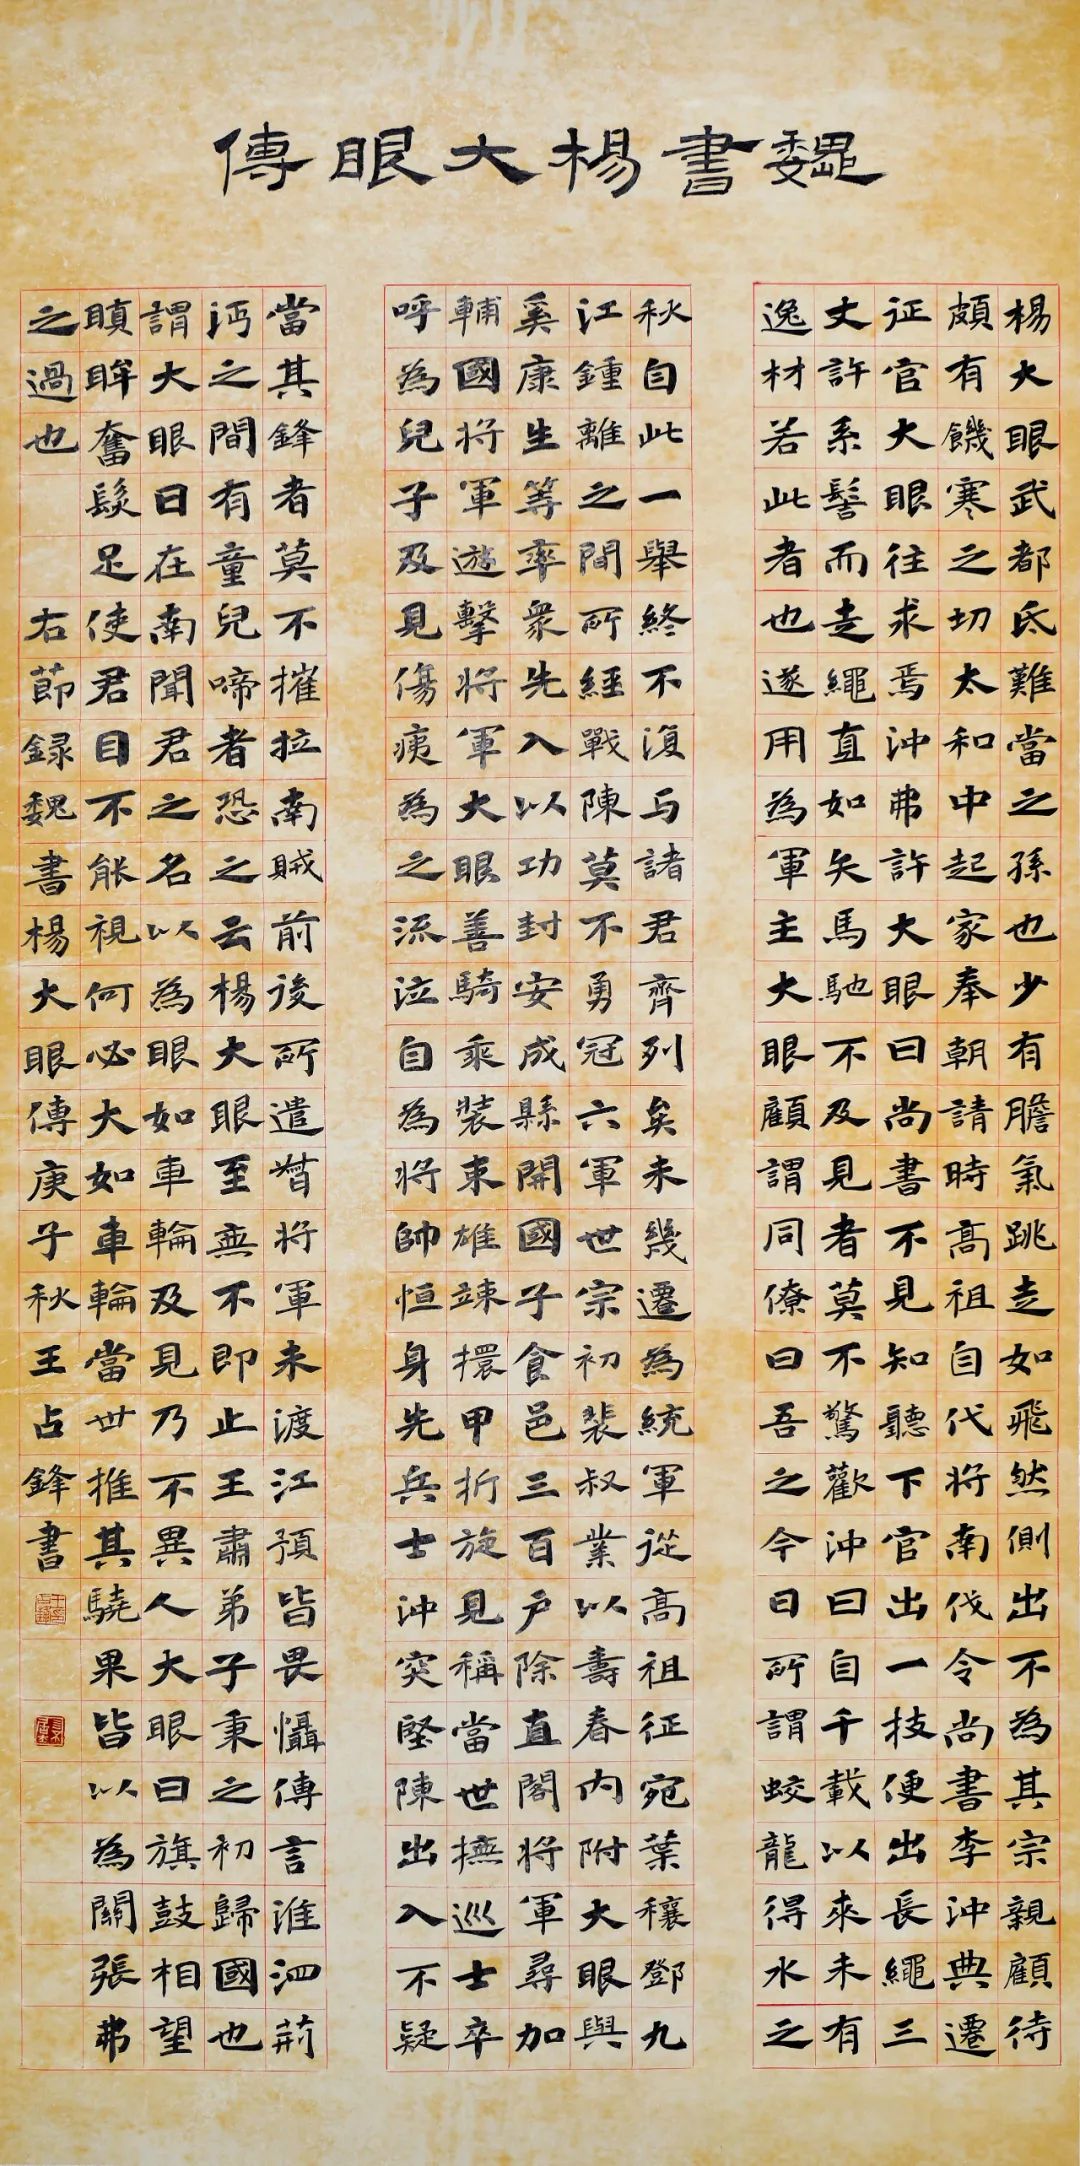 魏書楊大眼傳
楊大眼武都氐難當之孫也少有膽氣跳走如飛然側出不為其宗親顧待
頗有饑寒之切太和中起家奉朝請時高祖自代將南伐令尚書李沖典遷
征官大眼往求焉沖弗許大眼曰尚書不見知聽下官出一技便出長繩三
丈許系髻而走繩直如矢馬馳不及見者莫不驚歡沖曰自千載以來未有
逸材若此者也遂用為軍主大眼顧謂同僚曰吾之今日所謂蛟龍得水之
秋自此一舉終不復与諸君齊列矣未幾遷為統軍從高祖征宛葉穰鄧九
江鍾離之間所經戰陳莫不勇冠六軍世宗初裴叔業以壽春內附大眼與
奚康生等率衆先入以功封安成縣開國子食邑三百戶除直閣將軍尋加
輔國將軍遊擊將軍大眼善騎乘裝束雄竦擐甲折旋見稱當世撫巡士卒
呼為兒子及見傷痍為之流泣自為將帥恒身先兵士沖突堅陳出入不疑
當其鋒者莫不摧拉南賊前後所遣督將軍未渡江預皆畏懾傳言淮泗荊
沔之間有童兒啼者恐之云楊大眼至無不即止王肅弟子秉之初歸國也
謂大眼曰在南聞君之名以為眼如車輪及見乃不異人大眼曰旗鼓相望
瞋眸奮髮足使君目不能視何必大如車輪當世推其驍果皆以為關張弗
之過也 右節録魏書楊大眼傳庚子秋王占鋒書